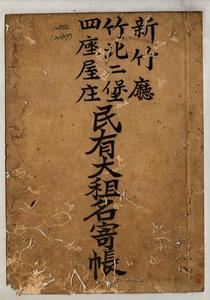 新竹廳
竹北二堡
四座屋庄
民有大租名寄帳